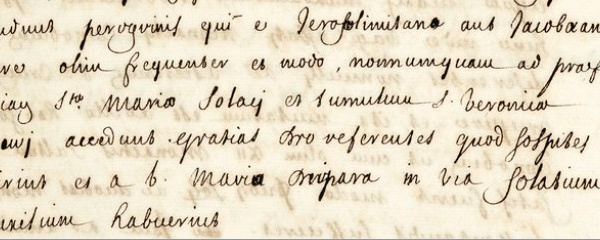 dunt peregrinis qui e Jerosolimitano aut Jacobæan
re olim frequenter et modo, nonnumquam ad præf
iam Sta Mariæ Solacij et tumulum S. Veronicæ
accedunt gratias Deo referentes quod sospites
erint et a b. Maria Deipara in via Solatium
auxilium habuerint